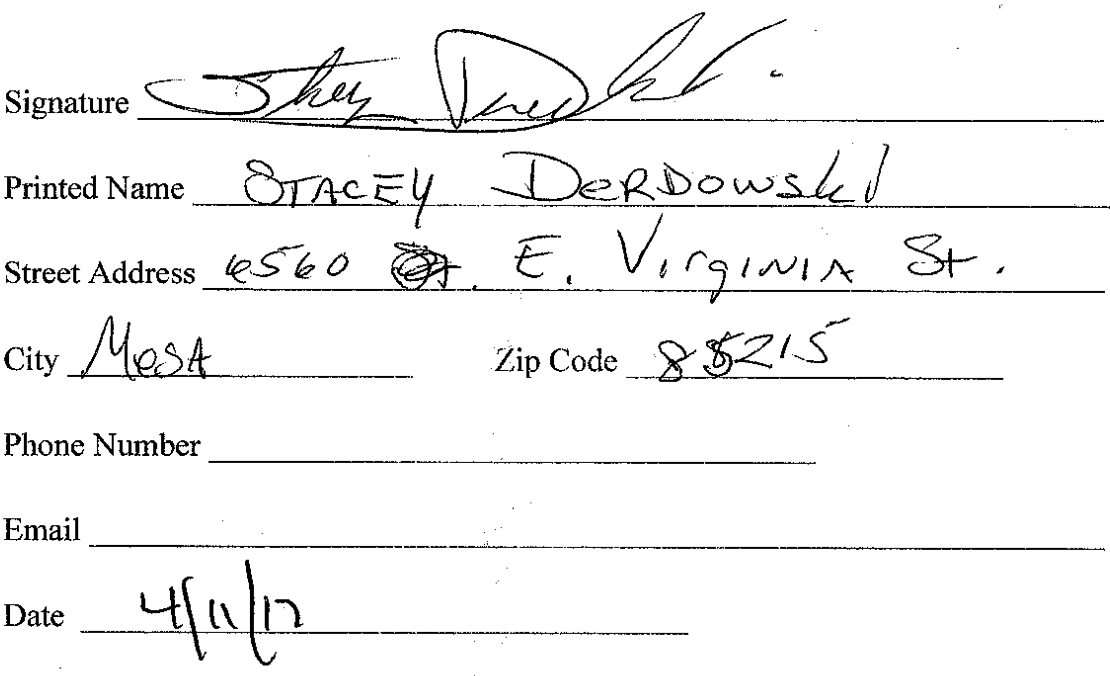 Signature
Printed Name STACEY DERDOWSKI
Street Address 6560 E. Virginia St.
City Mesa Zip Code 85215
Phone Number
Email
Date 4/11/17